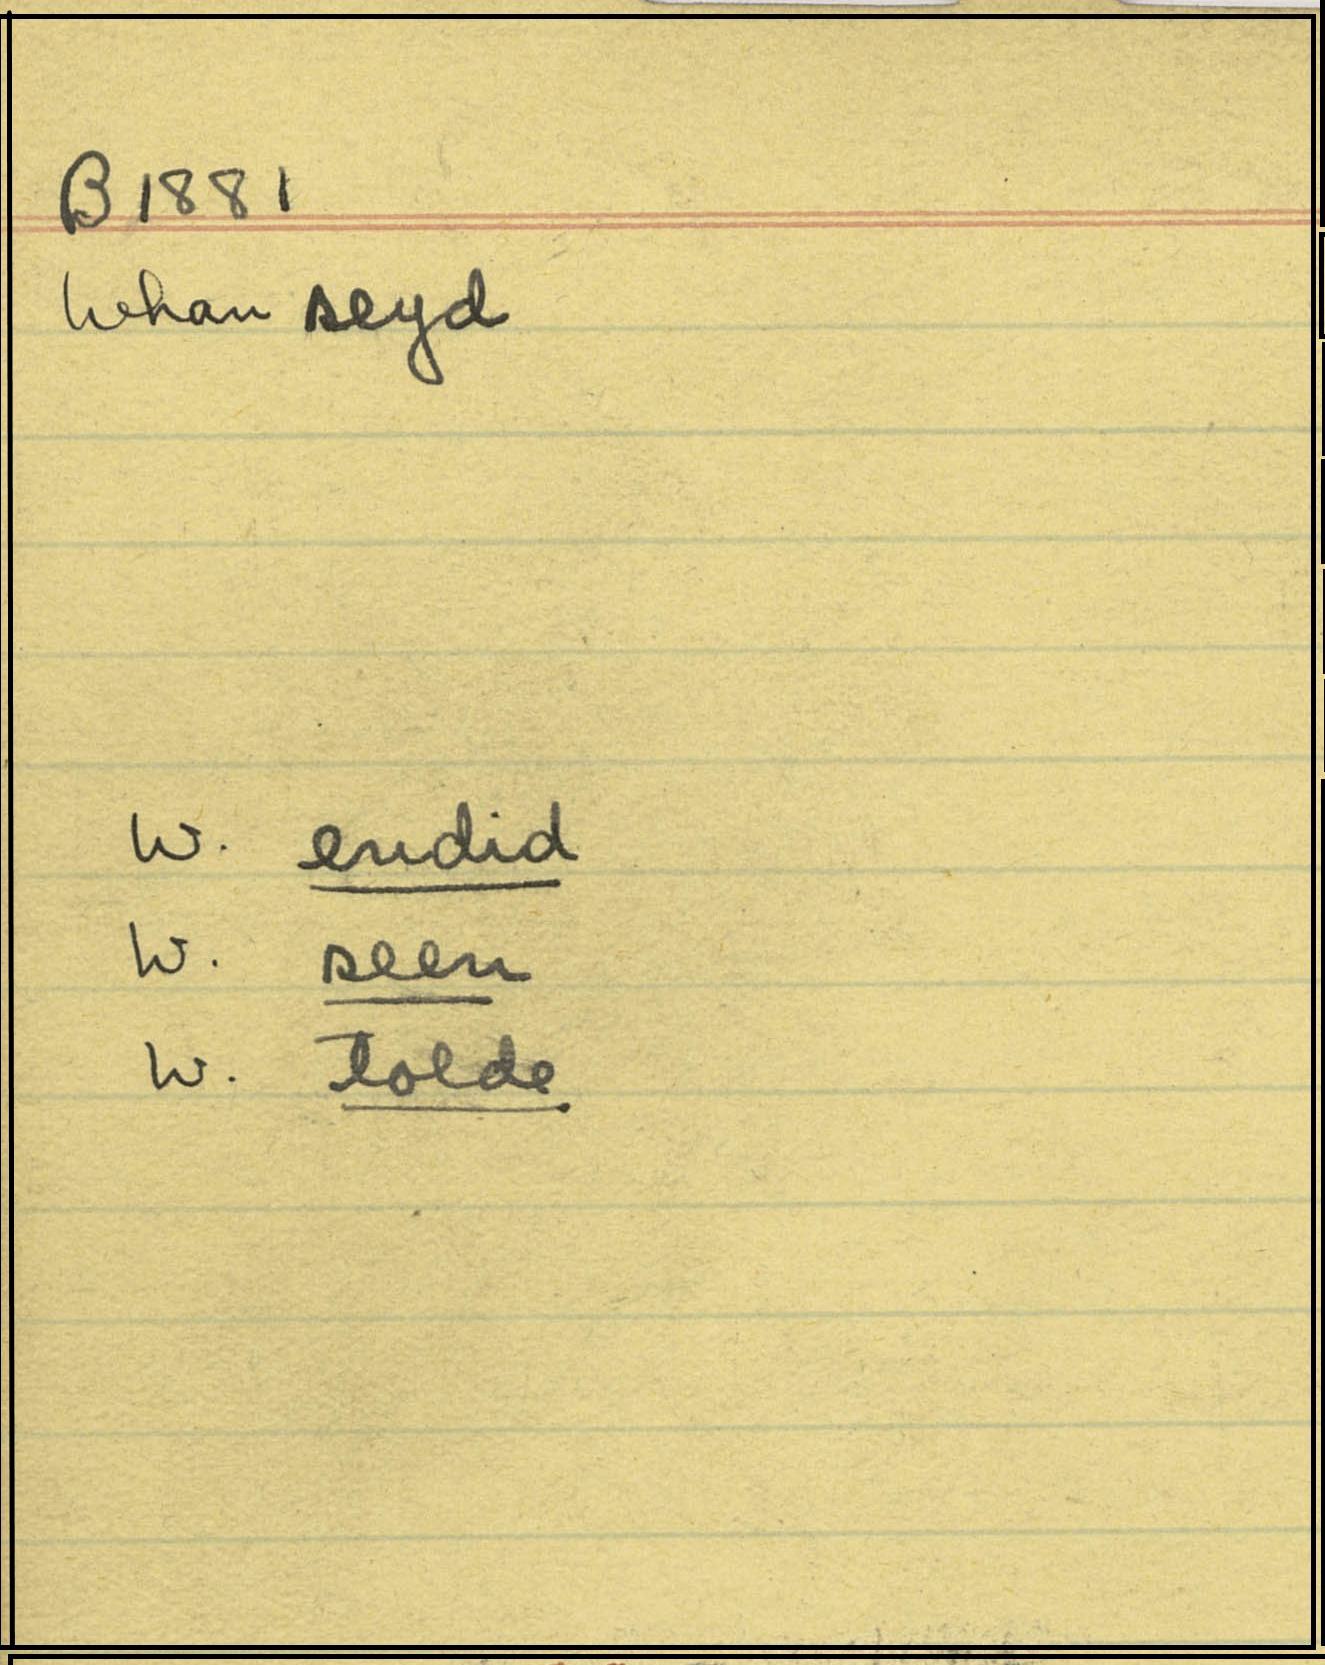 B 1881
Whan seyd
W. endid
W. seen
W. tolde